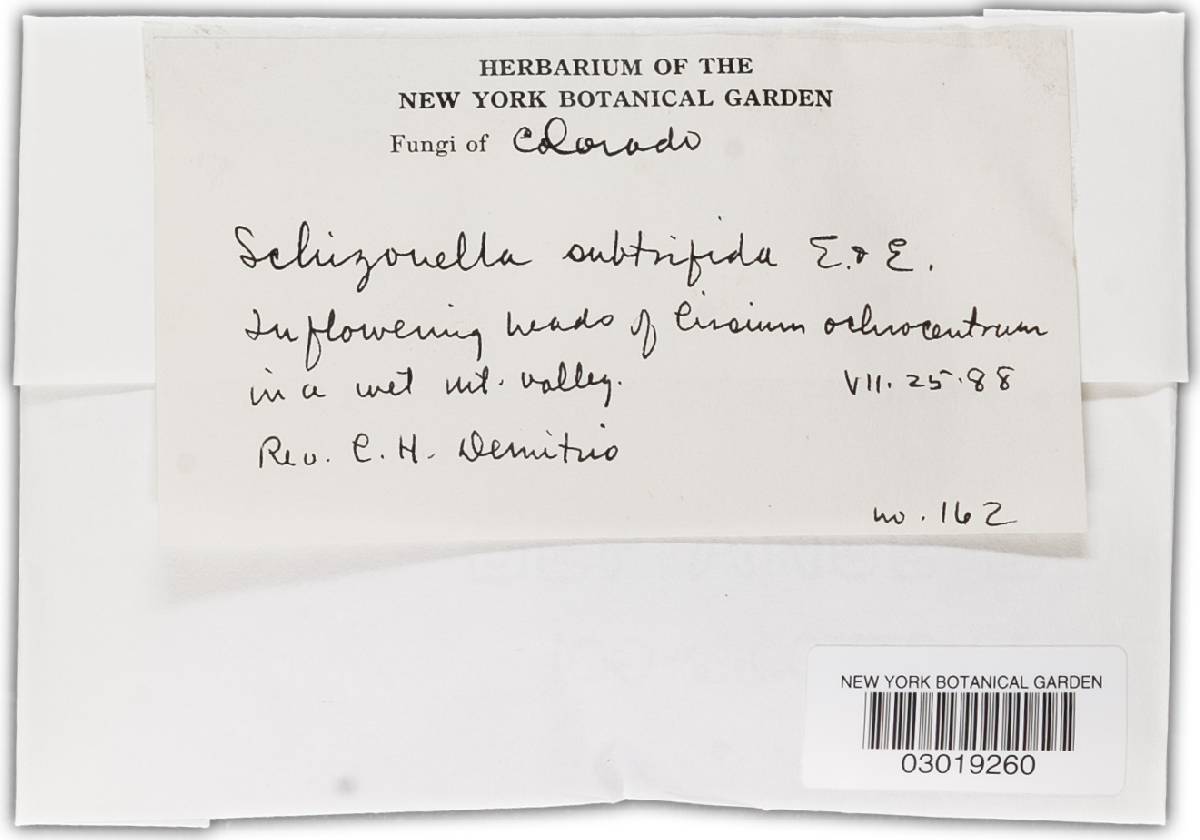 HERBARIUM OF THE
NEW YORK BOTANICAL GARDEN
Fungi of Colorado
Schizonella subtrifida E. & E.
In flowering heads of Cirsium ochrocentrum
in a wet mt. valley. VII. 25. 88
Rev. C. H. Demitrio
no. 162
NEW YORK BOTANICAL GARDEN
03019260